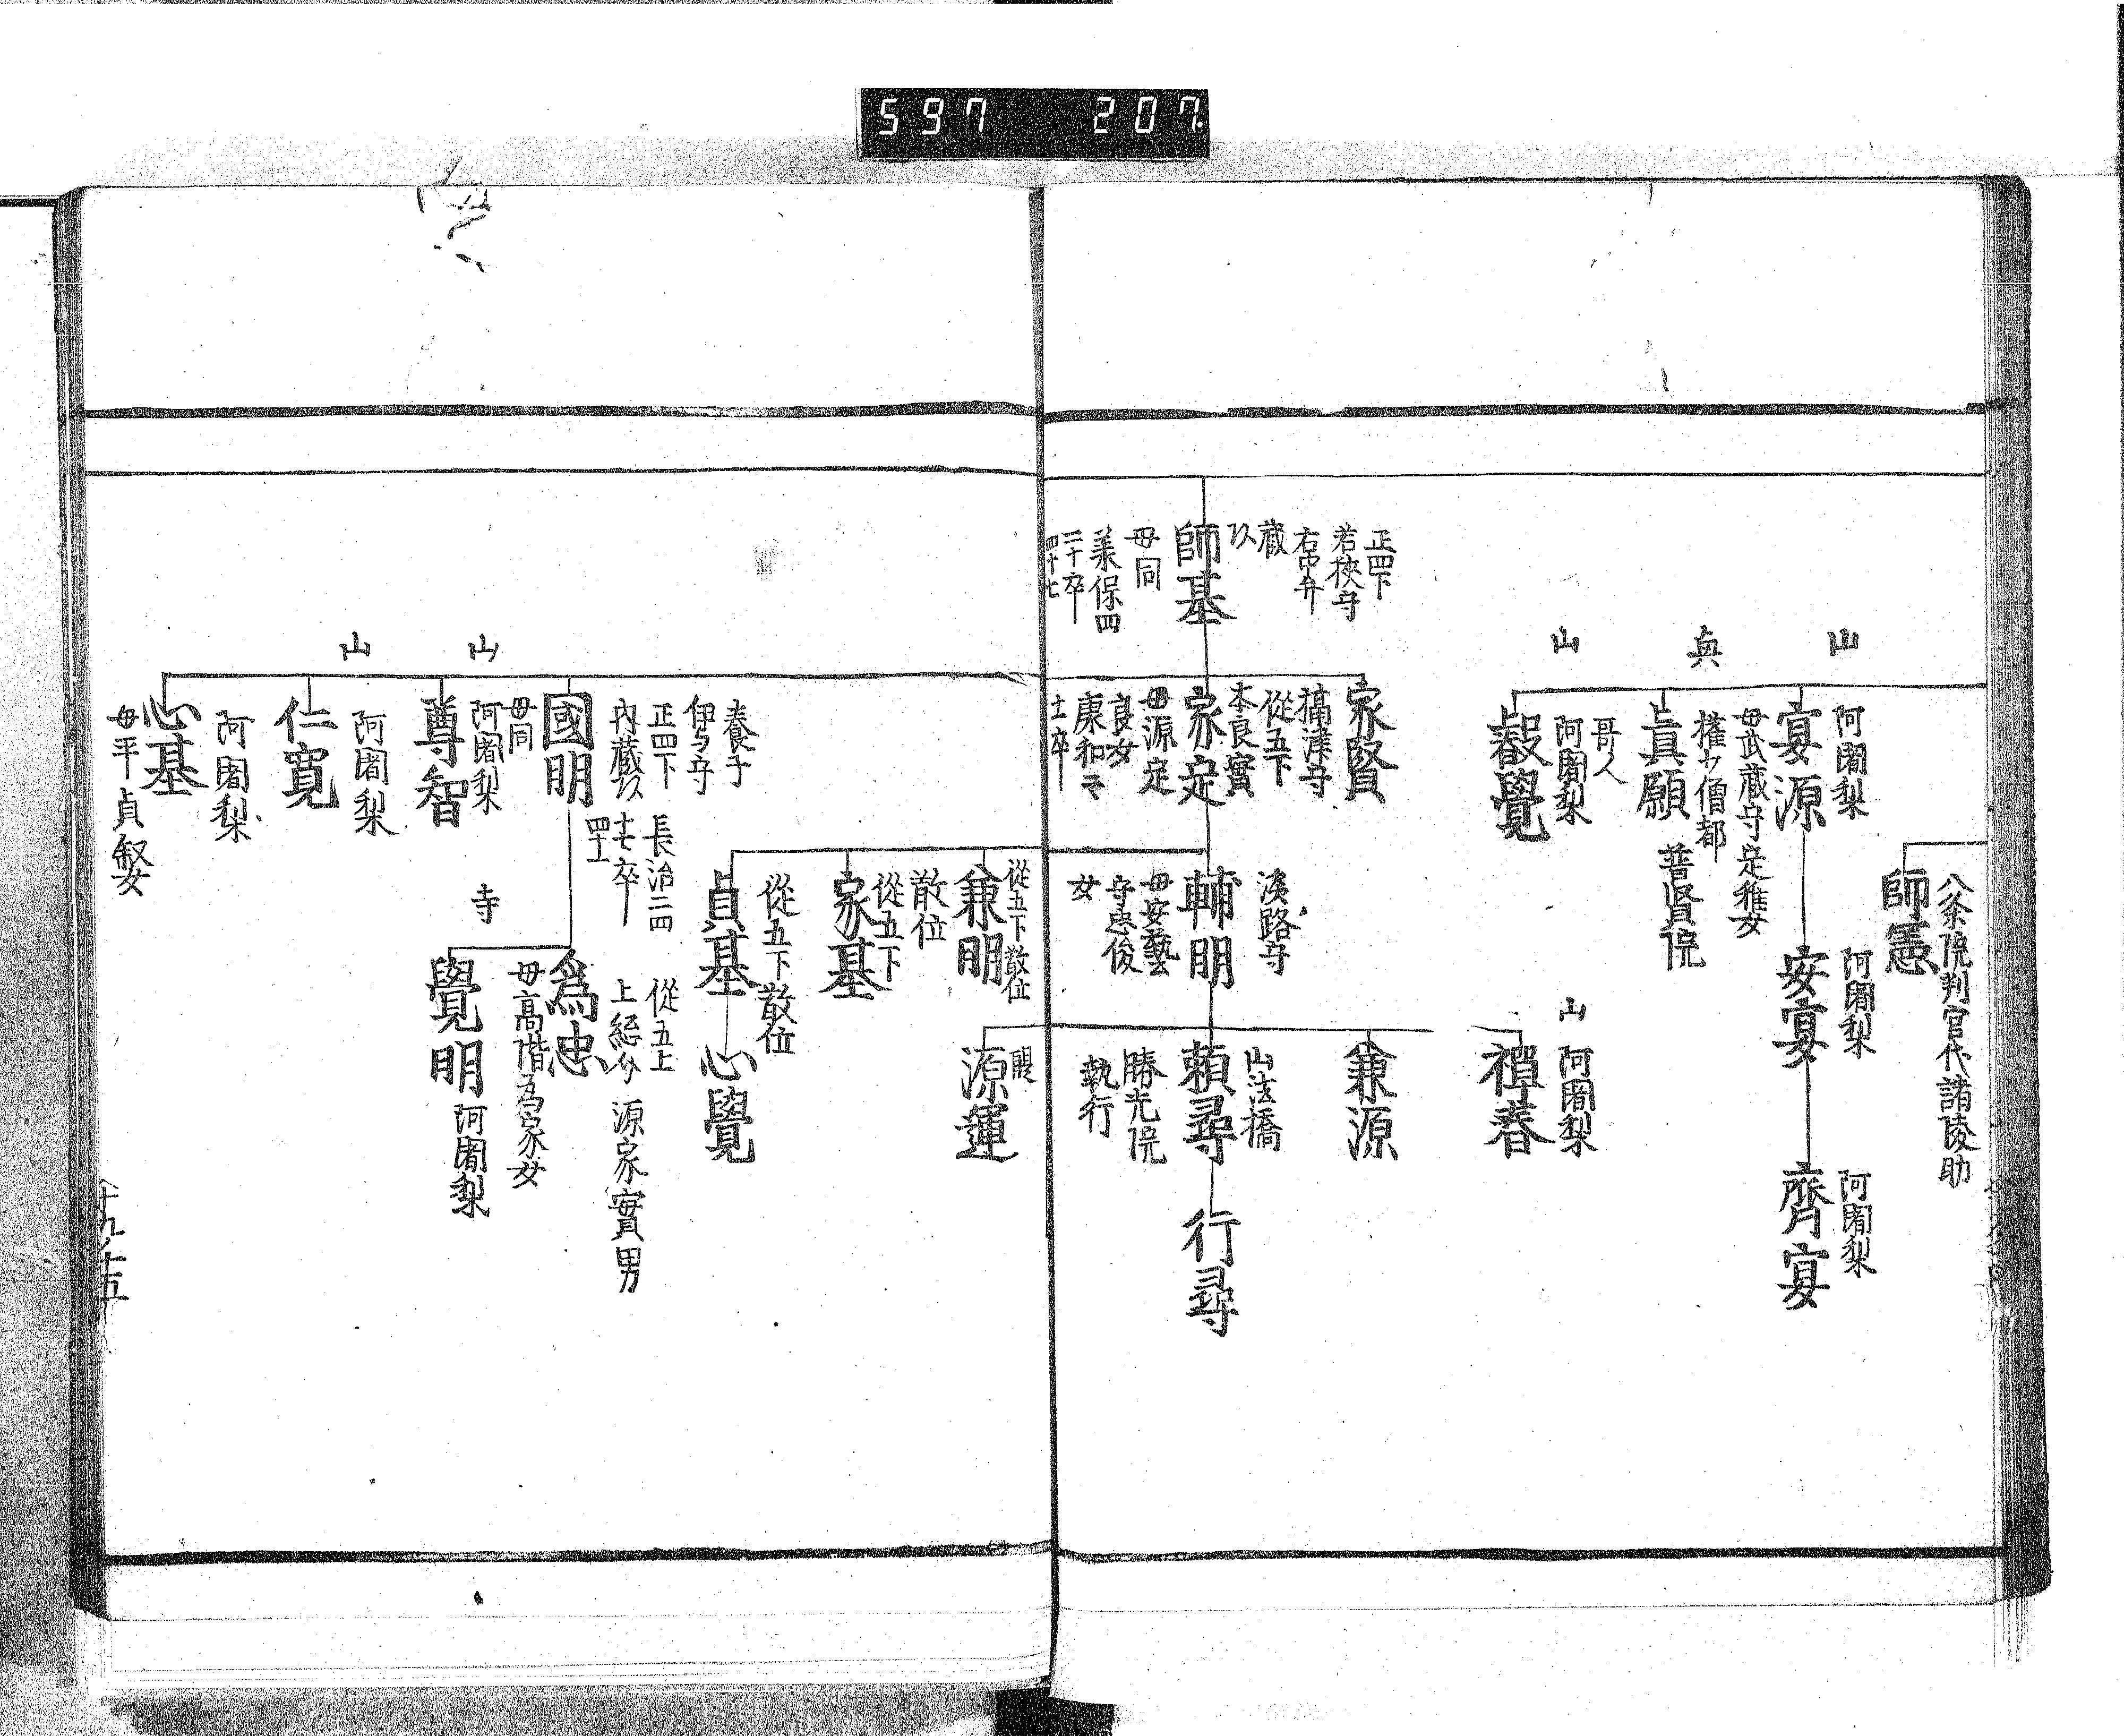 597 207
八条院判官代諸陵助
師憲
山
阿闍梨
宴源
阿闍梨
安宴
阿闍梨
齊宴
母武蔵守定雅女
権少僧都
真願
普賢院
山
哥人
阿闍梨
叡覺
正四下
若狭守
右中弁
蔵
師基
母同
承保四
二十卒
四十七
家賢
攝津守
從五下
本良實
家定
母源定
良女
康和二
十二卒
淡路守
輔明
母安藝
守忠俊
女
山
阿闍梨
禅春
兼源
山法橋
頼尋
勝光院
執行
行尋
源運
從五下散位
兼明
散位
從五下
家基
從五下散位
貞基
心覺
養子
伊与守
正四下
内蔵
長治二四
十七卒
國明
從五上
上総介
源家實男
爲忠
母高階為家女
寺
覺明
阿闍梨
母同
山
阿闍梨
尊智
山
阿闍梨
仁寛
阿闍梨
心基
母平貞叙女
十九ノ十五